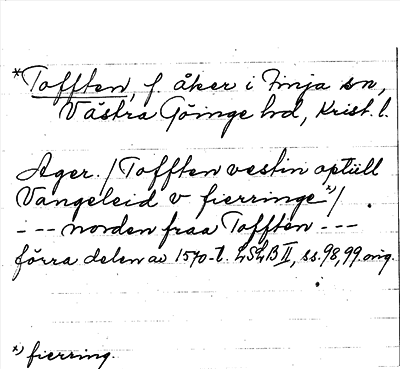 *Tofften, f. åker i Finja sn,
Västra Göinge hd, Krist. l.
Ager. / Tofften vestin optill
Vangeleid v fierringe*) /
--- norden fraa Tofften ---
förra delen av 1570-t. LSLB II, ss. 98, 99. orig.
*) fierring.